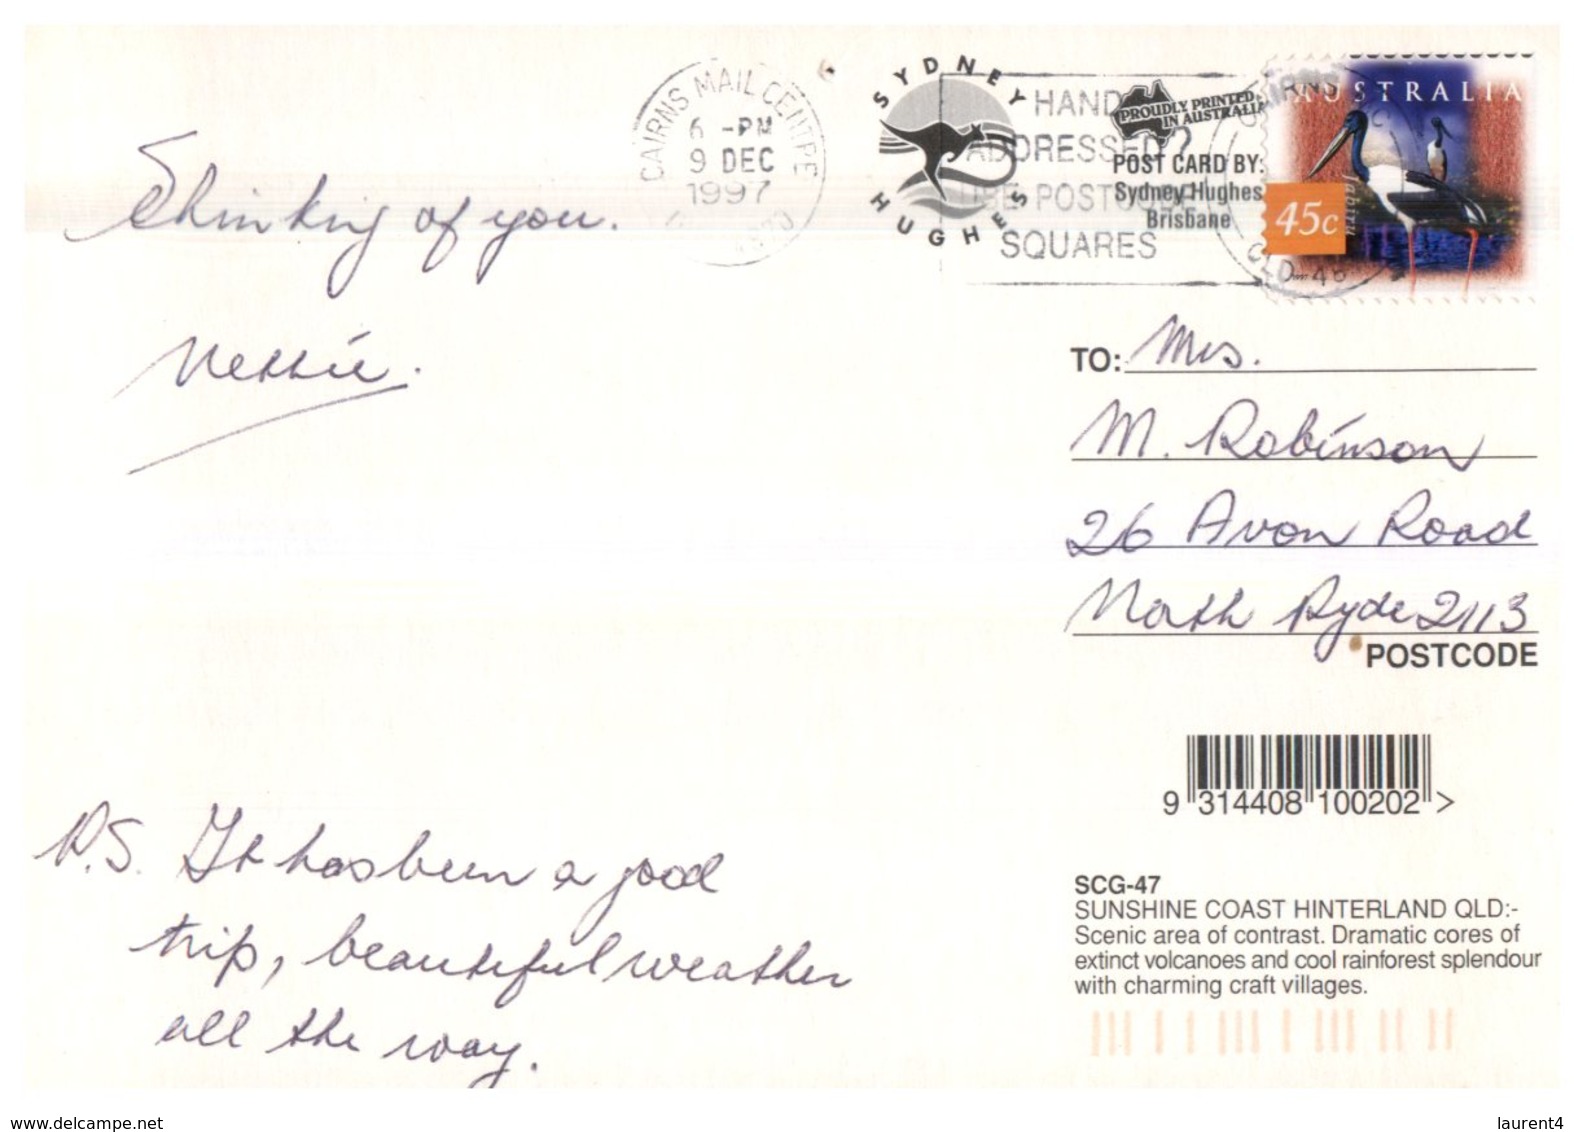 CAIRNS MAIL CENTRE
6 -PM
9 DEC
1997
SYDNEY
HUGHES
HAND
ADDRESSED?
USE POSTCODE
SQUARES
PROUDLY PRINTED
IN AUSTRALIA
POST CARD BY:
Sydney Hughes
Brisbane
AUSTRALIA
Jabiru
45c
CAIRNS
QLD
Thinking of you.
Nettie.
TO: Mrs.
M. Robinson
26 Avon Road
North Ryde 2113
POSTCODE
9 314408 100202 >
P.S. It has been a good
trip, beautiful weather
all the way.
SCG-47
SUNSHINE COAST HINTERLAND QLD:-
Scenic area of contrast. Dramatic cores of
extinct volcanoes and cool rainforest splendour
with charming craft villages.
www.delcampe.net
laurent4